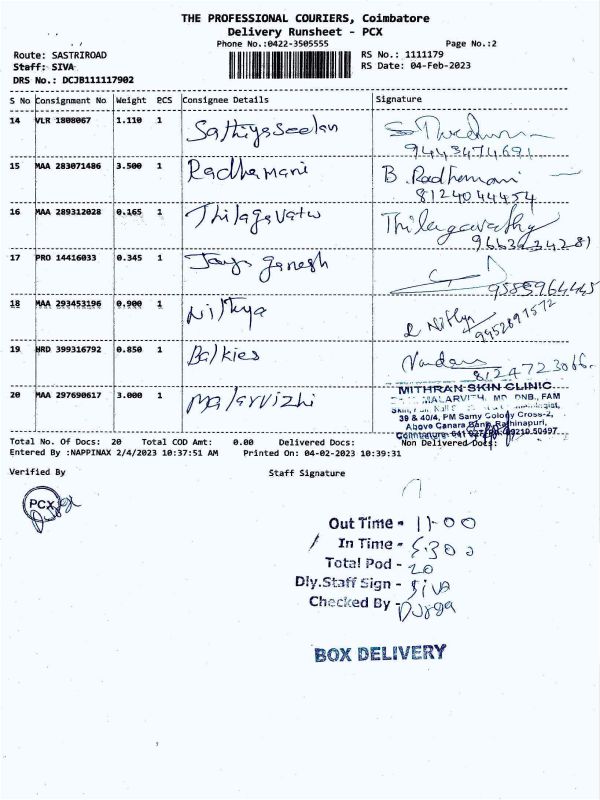 THE PROFESSIONAL COURIERS, Coimbatore
Delivery Runsheet - PCX
Phone No.:0422-3505555 Page No.:2
Route: SASTRIROAD RS No.: 1111179
Staff: SIVA RS Date: 04-Feb-2023
DRS No.: DCJB111117902
S No Consignment No Weight PCS Consignee Details Signature
14 VLR 1808067 1.110 1 Sathiyaseelan
9443474691
15 MAA 283071486 3.500 1 Radhamani B. Radhamani
8124044454
16 MAA 289312028 0.165 1 Thilagavatu Thilagavathy
9663434281
17 PRO 14416033 0.345 1 Jaya ganesh
9585964445
18 MAA 293453196 0.900 1 Nithya Nithya
9952891572
19 HRD 399316792 0.850 1 Balkies
8124723066.
20 MAA 297690617 3.000 1 Malarvizhi
MITHRAN SKIN CLINIC
MALARVIZHI, MD, DNB., FAM
39 & 40/4, PM Samy Colony Cross-2,
Above Canara Bank, Rathinapuri,
Coimbatore-641 027
Total No. Of Docs: 20 Total COD Amt: 0.00 Delivered Docs: Non Delivered Docs:
Entered By :NAPPINAX 2/4/2023 10:37:51 AM Printed On: 04-02-2023 10:39:31
Verified By Staff Signature
PCX
Durga
Out Time - 11.00
In Time - 5.30
Total Pod - 20
Dly.Staff Sign - Siva
Checked By - Durga
BOX DELIVERY